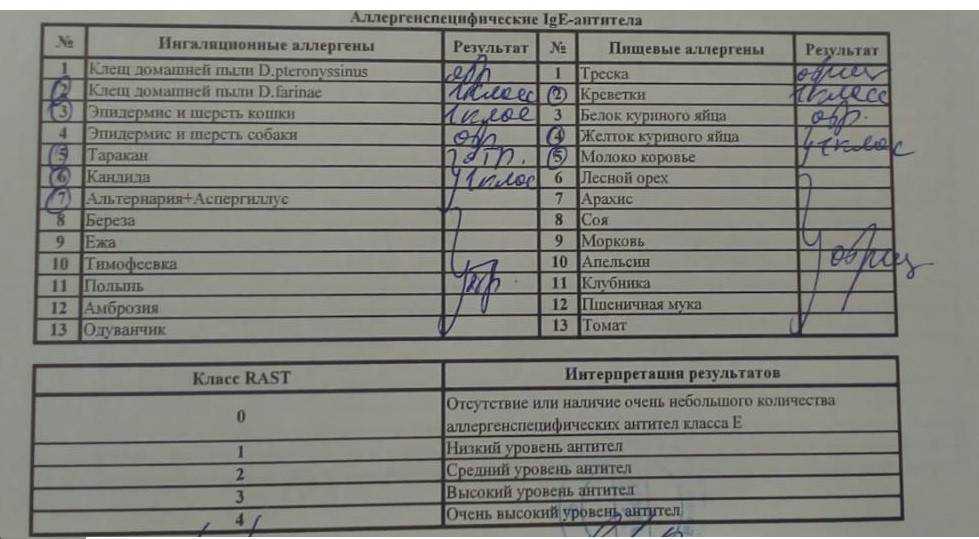 Аллергенспецифические IgE-антитела
№ Ингаляционные аллергены Результат № Пищевые аллергены Результат
1 Клещ домашней пыли D.pteronyssinus 1 Треска
2 Клещ домашней пыли D.farinae 1 класс 2 Креветки 1 класс
3 Эпидермис и шерсть кошки 1 клас 3 Белок куриного яйца отр.
4 Эпидермис и шерсть собаки отр. 4 Желток куриного яйца 1 клас
5 Таракан отр. 5 Молоко коровье
6 Кандида 1 клас 6 Лесной орех
7 Альтернария+Аспергиллус 7 Арахис
8 Береза 8 Соя
9 Ежа 9 Морковь
10 Тимофеевка 10 Апельсин
11 Полынь отр. 11 Клубника
12 Амброзия 12 Пшеничная мука
13 Одуванчик 13 Томат
Класс RAST Интерпретация результатов
0 Отсутствие или наличие очень небольшого количества
аллергенспецифических антител класса E
1 Низкий уровень антител
2 Средний уровень антител
3 Высокий уровень антител
4 Очень высокий уровень антител